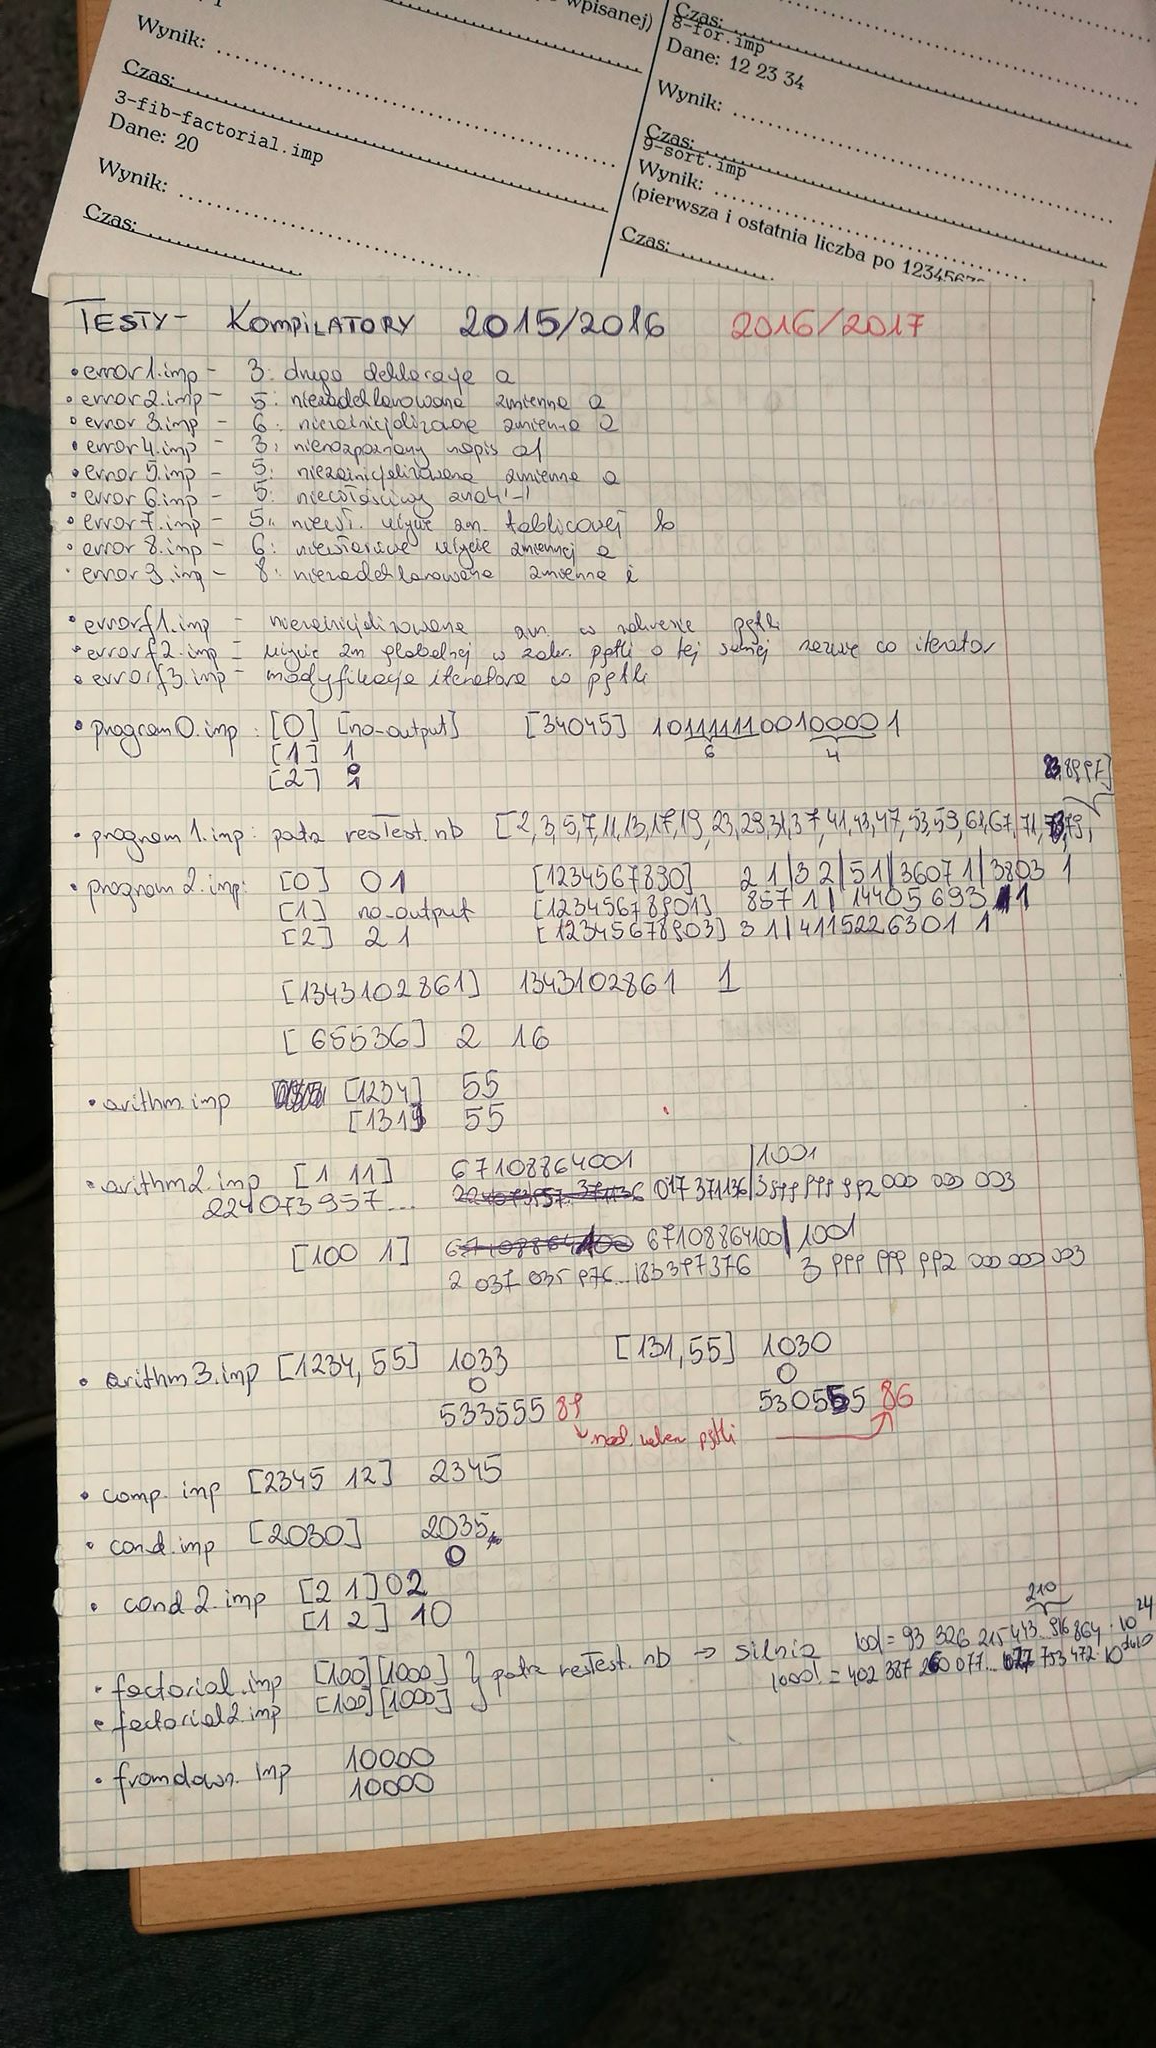 wpisanej)
Wynik:
Czas:
3-fib-factorial.imp
Dane: 20
Wynik:
Czas:
Czas:
8-for.imp
Dane: 12 23 34
Wynik:
Czas:
9-sort.imp
Wynik:
(pierwsza i ostatnia liczba po 1234567
Czas:
TESTY - KOMPILATORY 2015/2016 2016/2017
• error1.imp - 3: druga deklaracja a
• error2.imp - 5: niezadeklarowana zmienna a
• error3.imp - 6: niezainicjalizowana zmienna a
• error4.imp - 3: nierozpoznany napis a1
• error5.imp - 5: niezainicjalizowana zmienna a
• error6.imp - 5: niewłaściwy znak '-'
• error7.imp - 5: niewł. użycie zm. tablicowej b
• error8.imp - 6: niewłaściwe użycie zmiennej a
• error9.imp - 8: niezadeklarowana zmienna i
• errorf1.imp - niezainicjalizowana zm. w zakresie pętli
• errorf2.imp - użycie zm globalnej w zakr. pętli o tej samej nazwie co iterator
• errorf3.imp - modyfikacja iteratora w pętli
• program0.imp: [0] [no-output] [34045]
[1] 1
[2] 0
1
6 4
89 97]
• program1.imp: patrz resTest.nb [2,3,5,7,11,13,17,19,23,29,31,37,41,43,47,53,59,61,67,71,73,79,
• program2.imp: [0] 01 [1234567890] 2 1|3 2|5 1|3607 1|3803 1
[1] no-output [12345678901] 857 1| 14405693 1
[2] 2 1 [12345678903] 3 1|4115226301 1
[1343102861] 1343102861 1
[65536] 2 16
• arithm.imp [1234] 55
[131] 55
• arithm2.imp [1 11] 67108864001 |1001
224073957... 017371136|3999 999 992 000 000 003
[100 1] 67108864100| 1001
2 037 035 976...183397376 3 999 999 992 000 000 003
• arithm3.imp [1234,55] 1033 [131,55] 1030
0 0
533555 89 530555 86
pętli
• comp.imp [2345 12] 2345
• cond.imp [2030] 2035
0
• cond2.imp [2 1] 02
[1 2] 10
• factorial.imp [100][1000] } patrz resTest.nb → silnia 100! = 93 326 215 443...916 864·10^24
• factorial2.imp [100][1000] 1000! = 402 387 260 077... 753 472·10
210
• fromdown.imp 10000
10000